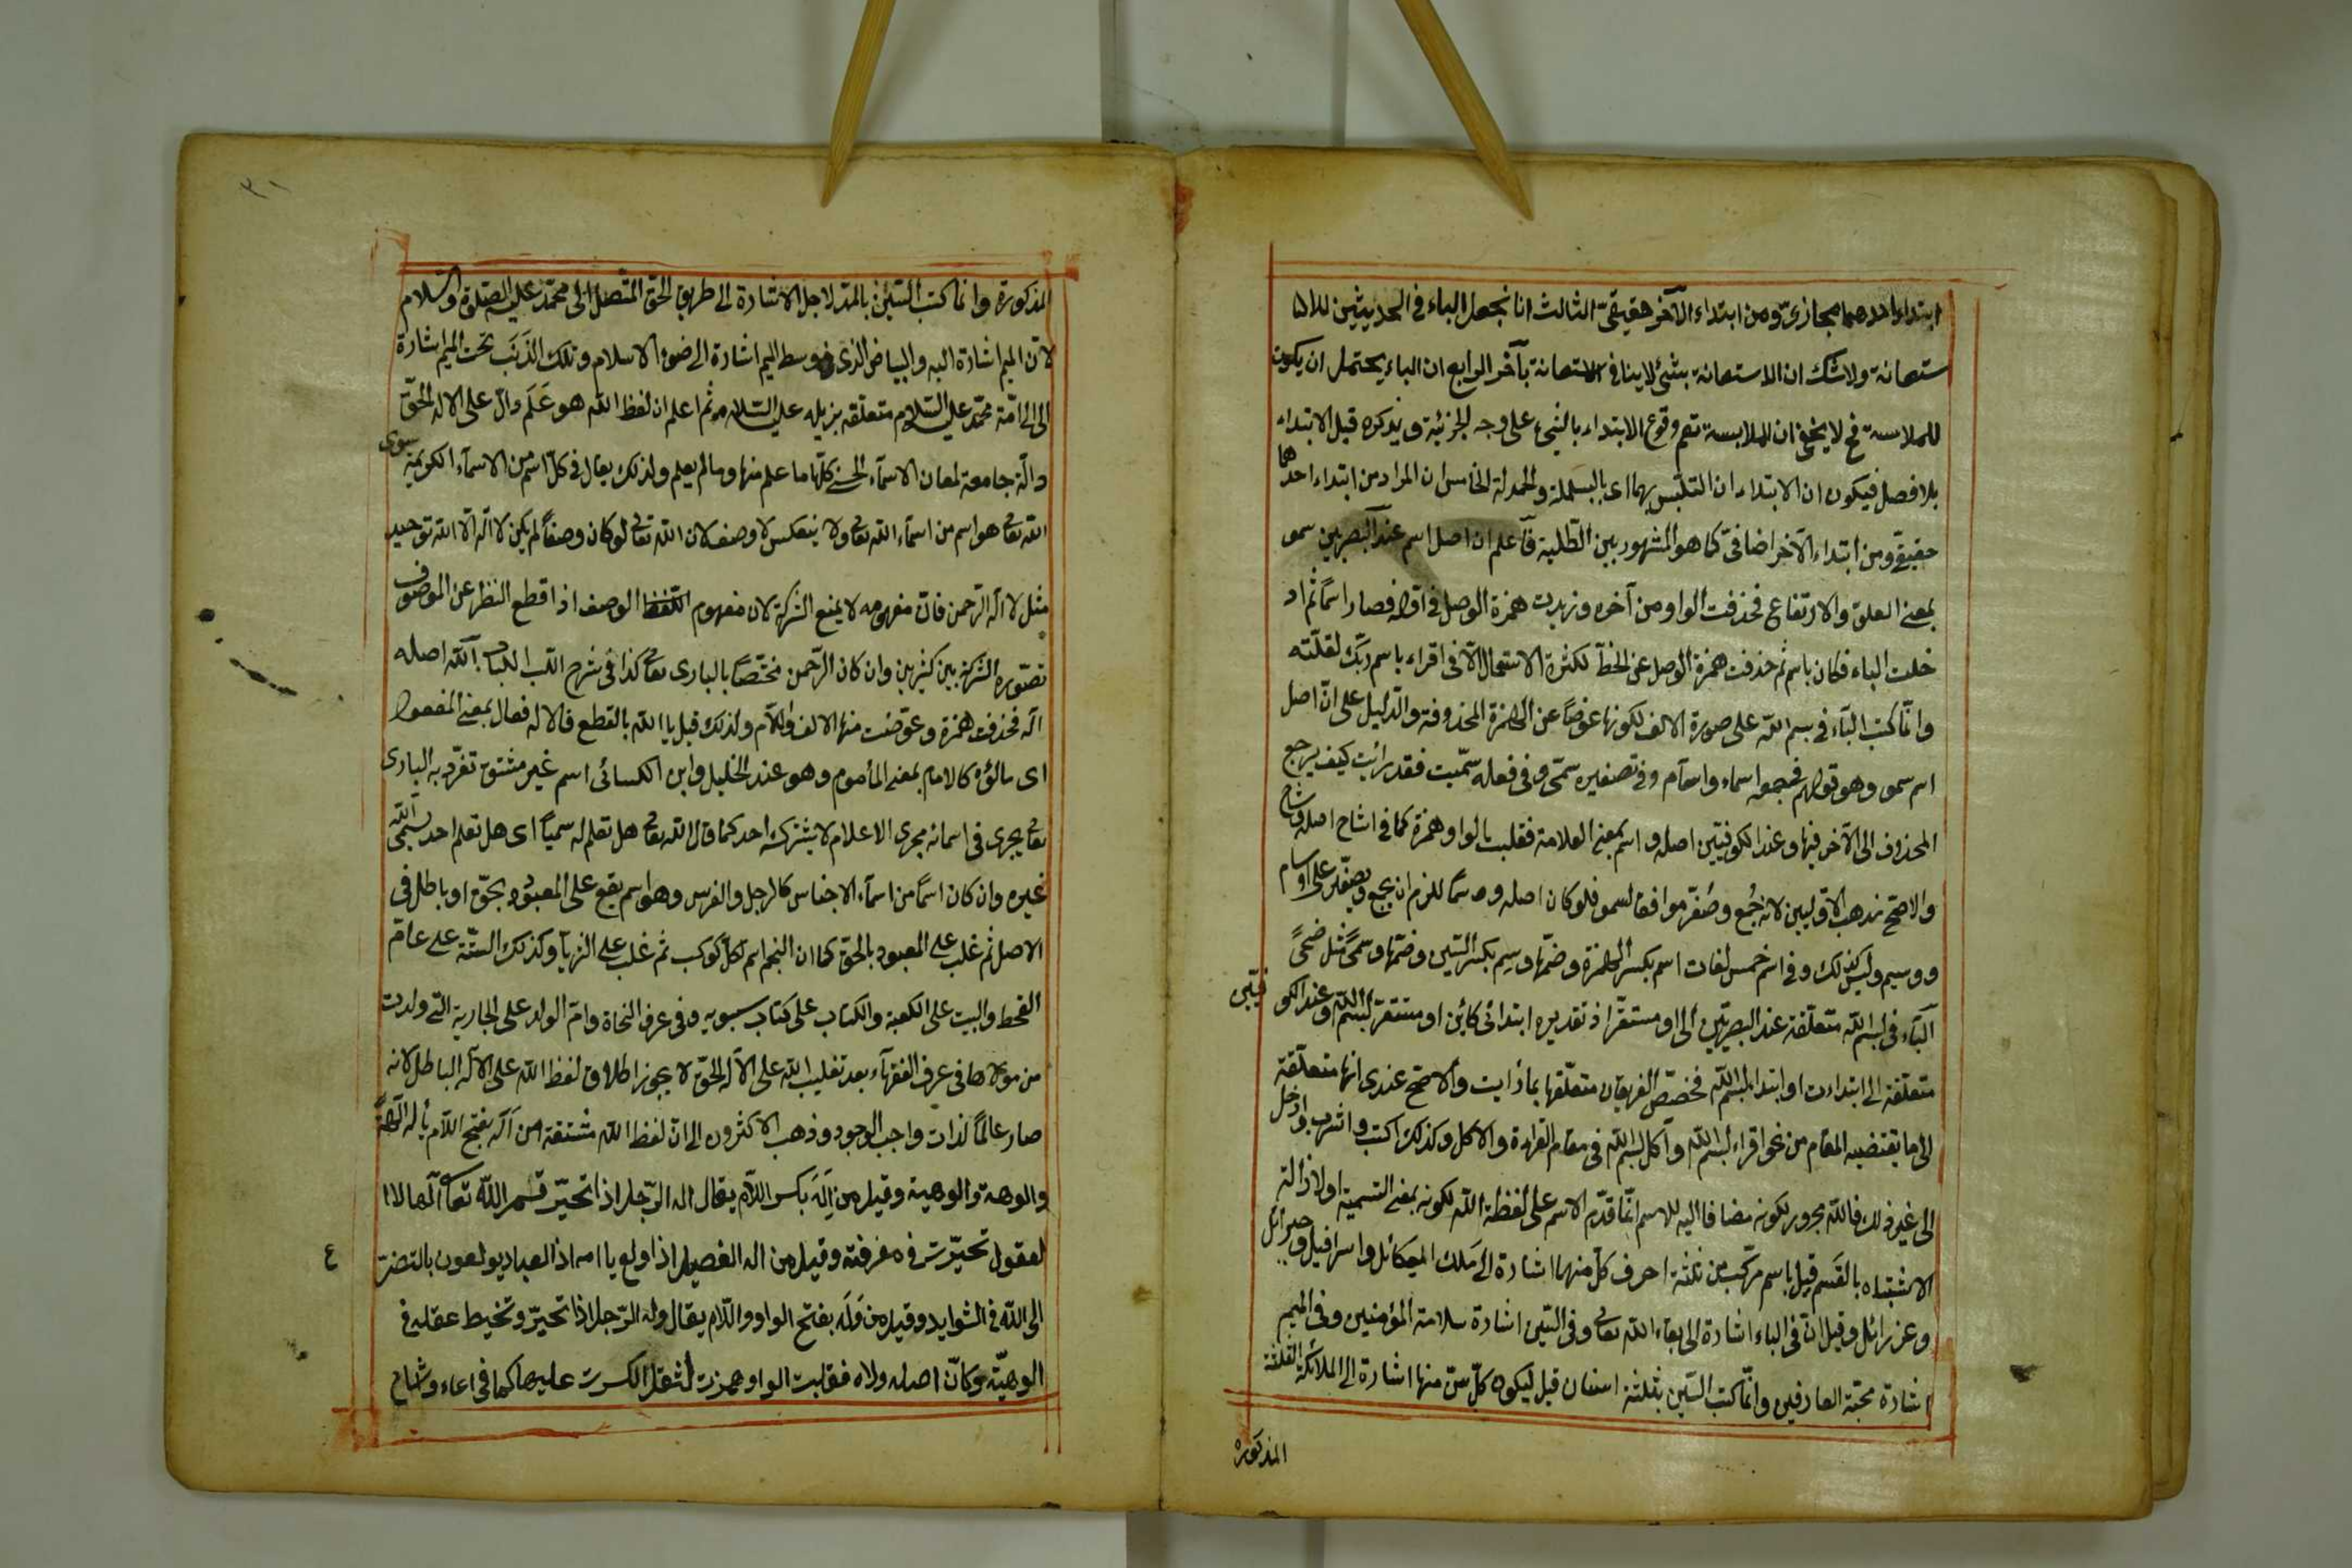 ابتداء احدهما مجازىّ ومن ابتداء الآخر حقيقىّ الثالث انا نجعل الباء فى الحديثين للا
ستعانة ولا شك ان الاستعانة بشئ لا ينافى الاستعانة بآخر الرابع ان الباء يحتمل ان يكون
للملابسة فح لا يخفى ان الملابسة تعم وقوع الابتداء بالشئ على وجه الجزئية ويذكره قبل الابتداء
بلا فصل فيكون ان الابتداء ان التلبّس بهما اى بالبسملة والحمدلة الخامس ان المراد من ابتداء احدهما
حقيقى ومن ابتداء الآخر اضافىّ كما هو المشهور بين الطّلبة فاعلم ان اصل اسم عند البصريين سمو
بمعنى العلوّ والارتفاع فحذفت الواو من آخره وزيدت همزة الوصل فى اوّله فصار اسماً ثم اد
خلت الباء فكان باسم ثم حذفت همزة الوصل عن الخطّ لكثرة الاستعمال الّا فى اقراء باسم ربّك لقلّته
وانّما كتب البآء فى بسم اللّه على صورة الالف لكونها عوضاً عن الهمزة المحذوفة والدّليل على انّ اصل
اسم سمو وهو قولهم فجمعه اسماء واسآم وفى تصغيره سمّى وفى فعله سمّيت فقد رائت كيف يرجع
المحذوف الى الآخر فيها وعند الكوفيّين اصله واسم بمعنى العلامة فقلبت بالواو همزة كما فى اشاح اصله وشاح
والاصحّ مذهب الاوّليين لانه جُمع وصُغّر موافقا لسمو فلو كان اصله وسماً للزم ان يجمع ويصغّر على اوسام
ووسيم وليس كذلك وفى اسم خمس لغات اسم بكسر الهمزة وضمّها وسِم بكسر السّين وضمّها وسمًى مثل ضحىً
البآء فى بسم اللّه متعلّقة عند البصريّين الى او مستقرّ اذ تقديره ابتدائى كائن او مستقرّ بسم اللّه وعند الكوفيّين
متعلّقة الى ابتداءت او ابتدا بسم اللّه فخصّص الفريقان متعلّقها بما ذايت والاصحّ عندى انها متعلّقة
الى ما يقتضيه المقام من نحو اقراء بسم اللّه وآكل بسم اللّه فى مقام القراءة والاكل وكذلك اكتب واشرب وادخل
الى غير ذلك فاللّه مجرور لكونه مضافا اليه للاسم انّما قدّم الاسم على لفظة اللّه لكونه بمعنى التسمية او لازالة
الاشتباه بالقَسم قيل باسم مركّب من ثلثة احرف كلّ منها اشارة الى مَلك الميكائل واسرافيل وجبرائل
وعزرائل وقيل انّ فى الباء اشارة الى بقاء اللّه تعالى وفى السّين اشارة سلامة المؤمنين وفى الميم
اشارة محبّة العارفين وانّما كتب السّين بثلثة اسنان قيل ليكون كلّ سنّ منها اشارة الى الملائكة الثلثة
المذكوره
٣١
المذكورة وانما كتب السّين بالمدّ لاجل الاشارة الى طريق الحقّ المتّصل الى محمّد عليه الصّلوة والسّلام
لانّ الميم اشارة اليه والبياض الذى فى وسط الميم اشارة الى ضوء الاسلام وتلك الذَنَب تحت الميم اشارة
الى الى امّة محمّد عليه السّلام متعلّقه بزيله عليه السّلام ثم اعلم ان لفظ اللّه هو عَلَم دالّ على الاله الحقّ
دالّة جامعة لمعان الاسمآء الحسنى كلّها ما علم منها وما لم يعلم ولذلك يقال فى كلّ اسم من الاسمآء الكريمة سوى
اللّه تعالى هو اسم من اسمآء اللّه تعالى ولا ينعكس لا وصف لان اللّه تعالى لو كان وصفاً لم يكن لا اله الّا اللّه توحيد
مثل لا اله الّا الرّحمن فانّ مفهومه لا يمنع الشركة لان مفهوم اللفظ الوصف اذا قطع النظر عن الموصوف
تصوّره الشركة بين كثيرين وان كان الرّحمن مختصّاً بالبارى تعالى كذا فى شرح اللب اللباب اللّه اصله
اله فحذفت همزة وعوّضت منها الالف واللام ولذلك قيل يا اللّه بالقطع فالاله فعال بمعنى المفعول
اى مالوه كالامام بمعنى المأموم وهو عند الخليل وابن الكسائى اسم غير مشتق تفرّد به البارى
تعالى يجرى فى اسمائه مجرى الاعلام لا يشترك احد كما قال اللّه تعالى هل تعلم له سمياً اى هل تعلم احد يسمّى اللّه
غيره وان كان اسماً من اسمآء الاجناس كالرجل والفرس وهو اسم يقع على المعبود بحقّ او باطل فى
الاصل ثم غلب على المعبود بالحقّ كما ان النجم اسم لكلّ كوكب ثم غلب على الثريآ وكذلك السّنة على عام
القحط والبيت على الكعبة والكتاب على كتاب سيبويه وفى عرف النحاة وام الولد على الجارية التى ولدت
من مولاها فى عرف الفقهآء بعد تغليب اللّه على الاله الحقّ لا يجوز اطلاق لفظ اللّه على الاله الباطل لانه
صار عالماً لذات واجب الوجود وذهب الاكثرون الى انّ لفظ اللّه مشتقة من اَلَه بفتح اللّام يأله الاهةً
والوهة والوهية وقيل من اَلِهَ بكسر اللّام يقال اله الرّجل اذا تحيّر قسم اللّه تعالى آلها لا
لعقول تحيّرت فى معرفته وقيل من اله الفصيل اذا ولع يا امه اذ العباد يولعون بالتضرّ
ع
الى اللّه فى الشوايد وقيل من وَلَه بفتح الواو واللّام يقال وله الرّجل اذا تحيّر وتخيط عقله فى
الوهيّة وكانّ اصله ولاه فقلبت الواو همزة لثقل الكسرت عليها كما فى اعاء وشاح